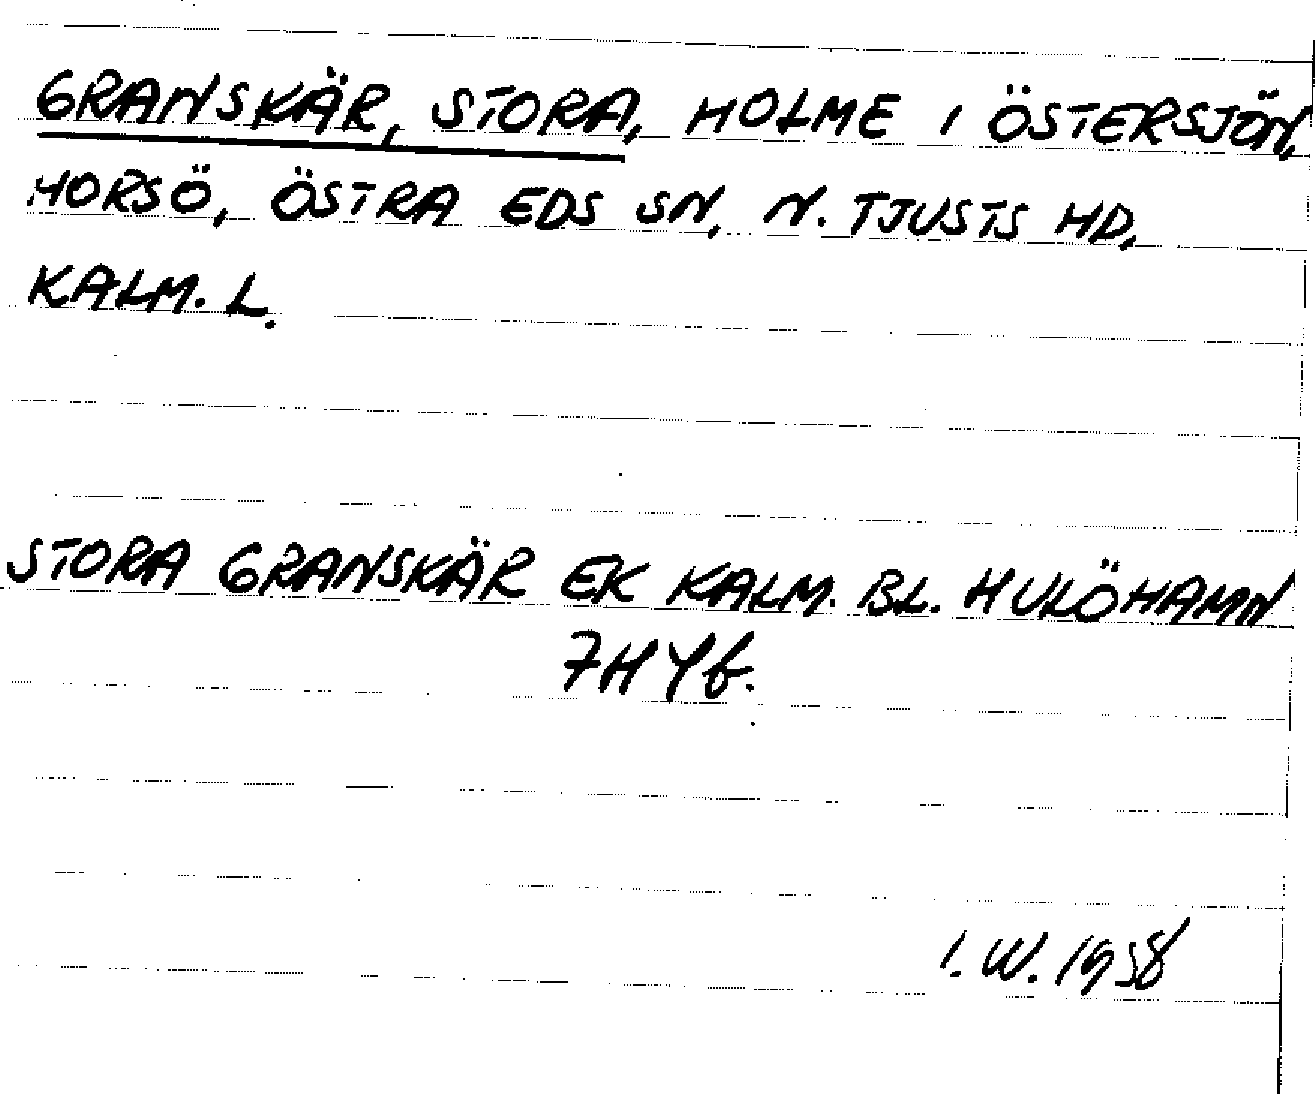 GRANSKÄR, STORA, HOLME I ÖSTERSJÖN,
HORSÖ, ÖSTRA EDS SN, N. TJUSTS HD,
KALM. L.
STORA GRANSKÄR EK KALM. BL. HULÖHAMN
7H4b.
I. W. 1958